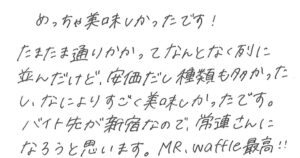 めっちゃ美味しかったです!
たまたま通りかかってなんとなく列に
並んだけど、安価だし種類も多かった
し、なによりすごく美味しかったです。
バイト先が新宿なので、常連さんに
なろうと思います。MR.waffle最高!!